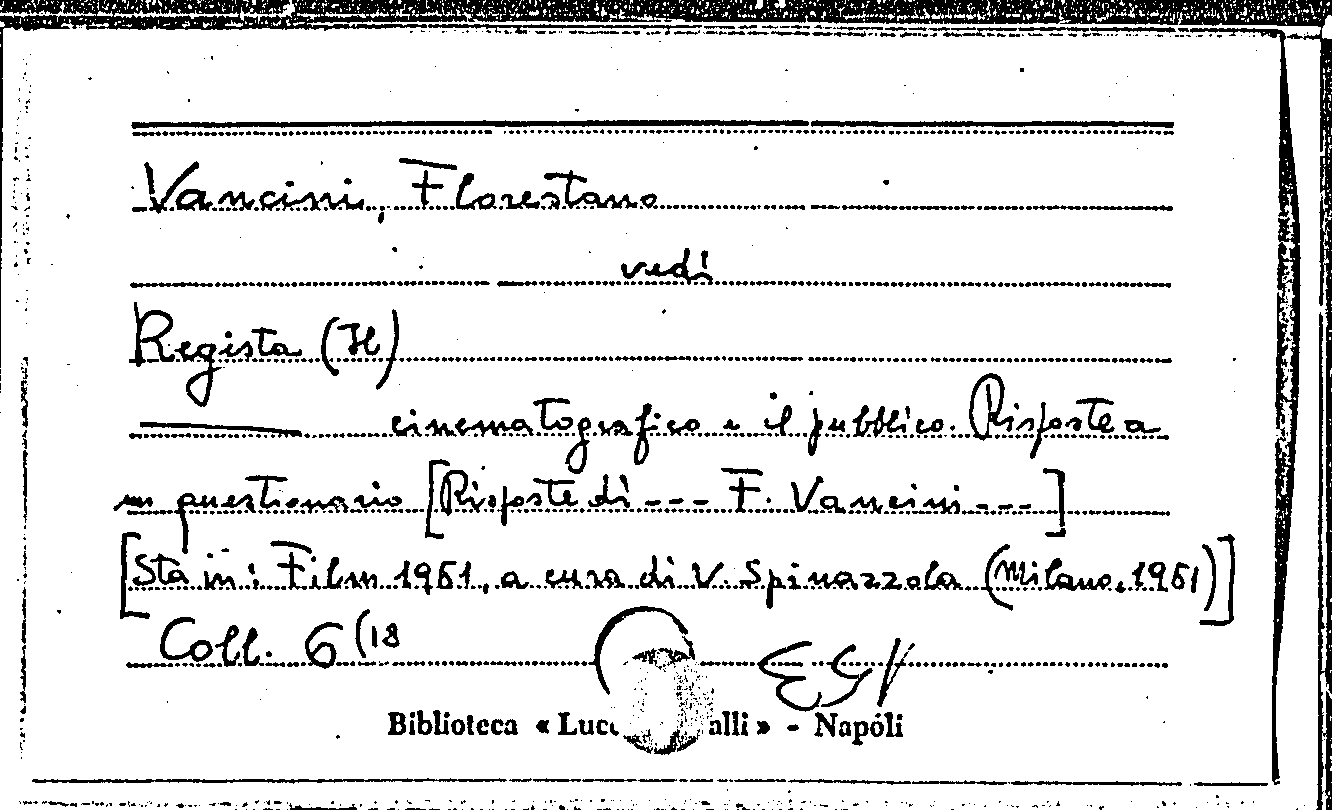 Vancini, Florestano
vedi
Regista (Il)
cinematografico e il pubblico. Risposte a
un questionario [Risposte di --- F. Vancini ---]
[Sta in: Film 1961, a cura di V. Spinazzola (Milano, 1961)]
Coll. 6 (18
Biblioteca « Lucc alli » - Napoli